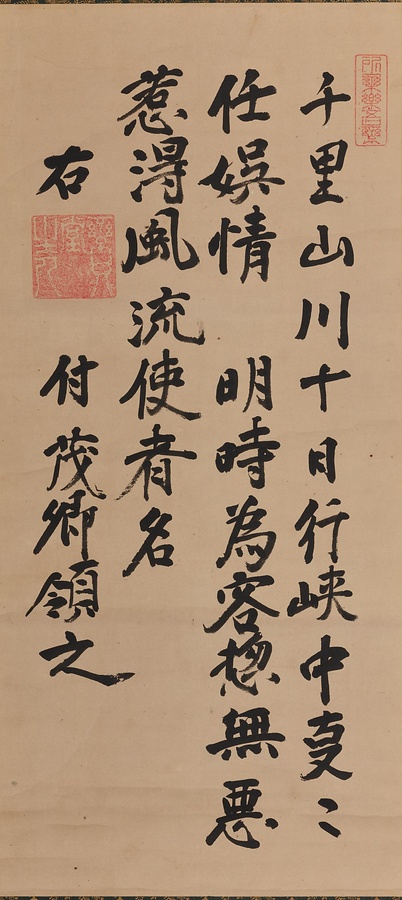 千里山川十日行峡中處〻
任娯情　明時為客揔無悪
惹得風流使者名
右　付茂卿領之